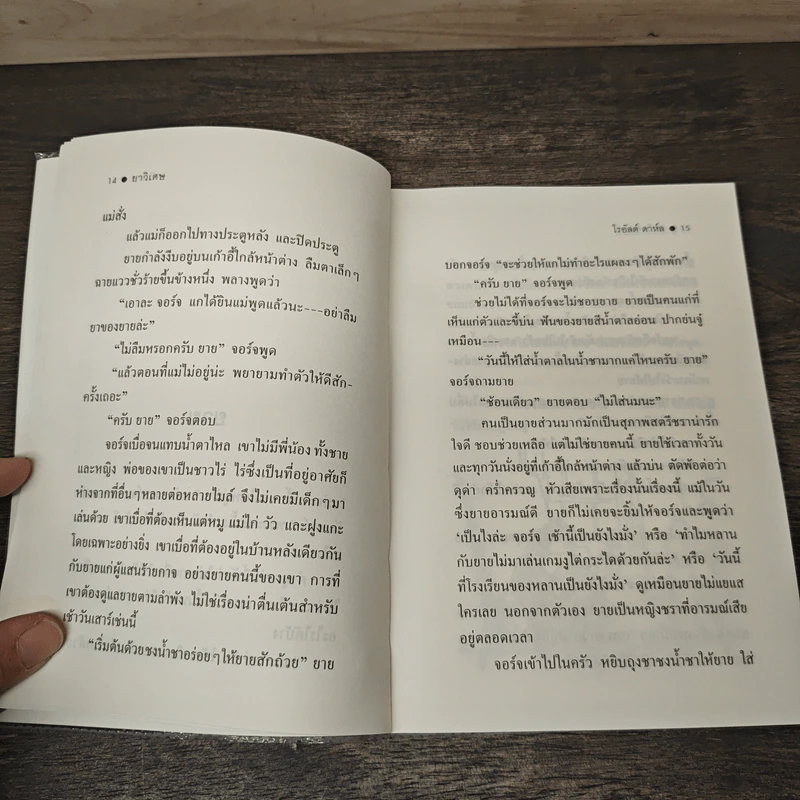 14 ● ยาวิเศษ
แม่สั่ง
แล้วแม่ก็ออกไปทางประตูหลัง และปิดประตู
ยายกำลังงีบอยู่บนเก้าอี้ใกล้หน้าต่าง ลืมตาเล็กๆ
ฉายแววชั่วร้ายขึ้นข้างหนึ่ง พลางพูดว่า
“เอาละ จอร์จ แกได้ยินแม่พูดแล้วนะ---อย่าลืม
ยาของยายล่ะ”
“ไม่ลืมหรอกครับ ยาย” จอร์จพูด
“แล้วตอนที่แม่ไม่อยู่น่ะ พยายามทำตัวให้ดีสัก-
ครั้งเถอะ”
“ครับ ยาย” จอร์จตอบ
จอร์จเบื่อจนแทบน้ำตาไหล เขาไม่มีพี่น้อง ทั้งชาย
และหญิง พ่อของเขาเป็นชาวไร่ ไร่ซึ่งเป็นที่อยู่อาศัยก็
ห่างจากที่อื่นๆหลายต่อหลายไมล์ จึงไม่เคยมีเด็กๆมา
เล่นด้วย เขาเบื่อที่ต้องเห็นแต่หมู แม่ไก่ วัว และฝูงแกะ
โดยเฉพาะอย่างยิ่ง เขาเบื่อที่ต้องอยู่ในบ้านหลังเดียวกัน
กับยายแก่ผู้แสนร้ายกาจ อย่างยายคนนี้ของเขา การที่
เขาต้องดูแลยายตามลำพัง ไม่ใช่เรื่องน่าตื่นเต้นสำหรับ
เช้าวันเสาร์เช่นนี้
“เริ่มต้นด้วยชงน้ำชาอร่อยๆให้ยายสักถ้วย” ยาย
โรอัลด์ ดาห์ล ● 15
บอกจอร์จ “จะช่วยให้แกไม่ทำอะไรแผลงๆได้สักพัก”
“ครับ ยาย” จอร์จพูด
ช่วยไม่ได้ที่จอร์จจะไม่ชอบยาย ยายเป็นคนแก่ที่
เห็นแก่ตัวและขี้บ่น ฟันของยายสีน้ำตาลอ่อน ปากย่นจู๋
เหมือน---
“วันนี้ให้ใส่น้ำตาลในน้ำชามากแค่ไหนครับ ยาย”
จอร์จถามยาย
“ช้อนเดียว” ยายตอบ “ไม่ใส่นมนะ”
คนเป็นยายส่วนมากมักเป็นสุภาพสตรีชราน่ารัก
ใจดี ชอบช่วยเหลือ แต่ไม่ใช่ยายคนนี้ ยายใช้เวลาทั้งวัน
และทุกวันนั่งอยู่ที่เก้าอี้ใกล้หน้าต่าง แล้วบ่น ตัดพ้อต่อว่า
ดุด่า คร่ำครวญ หัวเสียเพราะเรื่องนั้นเรื่องนี้ แม้ในวัน
ซึ่งยายอารมณ์ดี ยายก็ไม่เคยจะยิ้มให้จอร์จและพูดว่า
‘เป็นไงล่ะ จอร์จ เช้านี้เป็นยังไงมั่ง’ หรือ ‘ทำไมหลาน
กับยายไม่มาเล่นเกมงูไต่กระไดด้วยกันล่ะ’ หรือ ‘วันนี้
ที่โรงเรียนของหลานเป็นยังไงมั่ง’ ดูเหมือนยายไม่แยแส
ใครเลย นอกจากตัวเอง ยายเป็นหญิงชราที่อารมณ์เสีย
อยู่ตลอดเวลา
จอร์จเข้าไปในครัว หยิบถุงชาชงน้ำชาให้ยาย ใส่